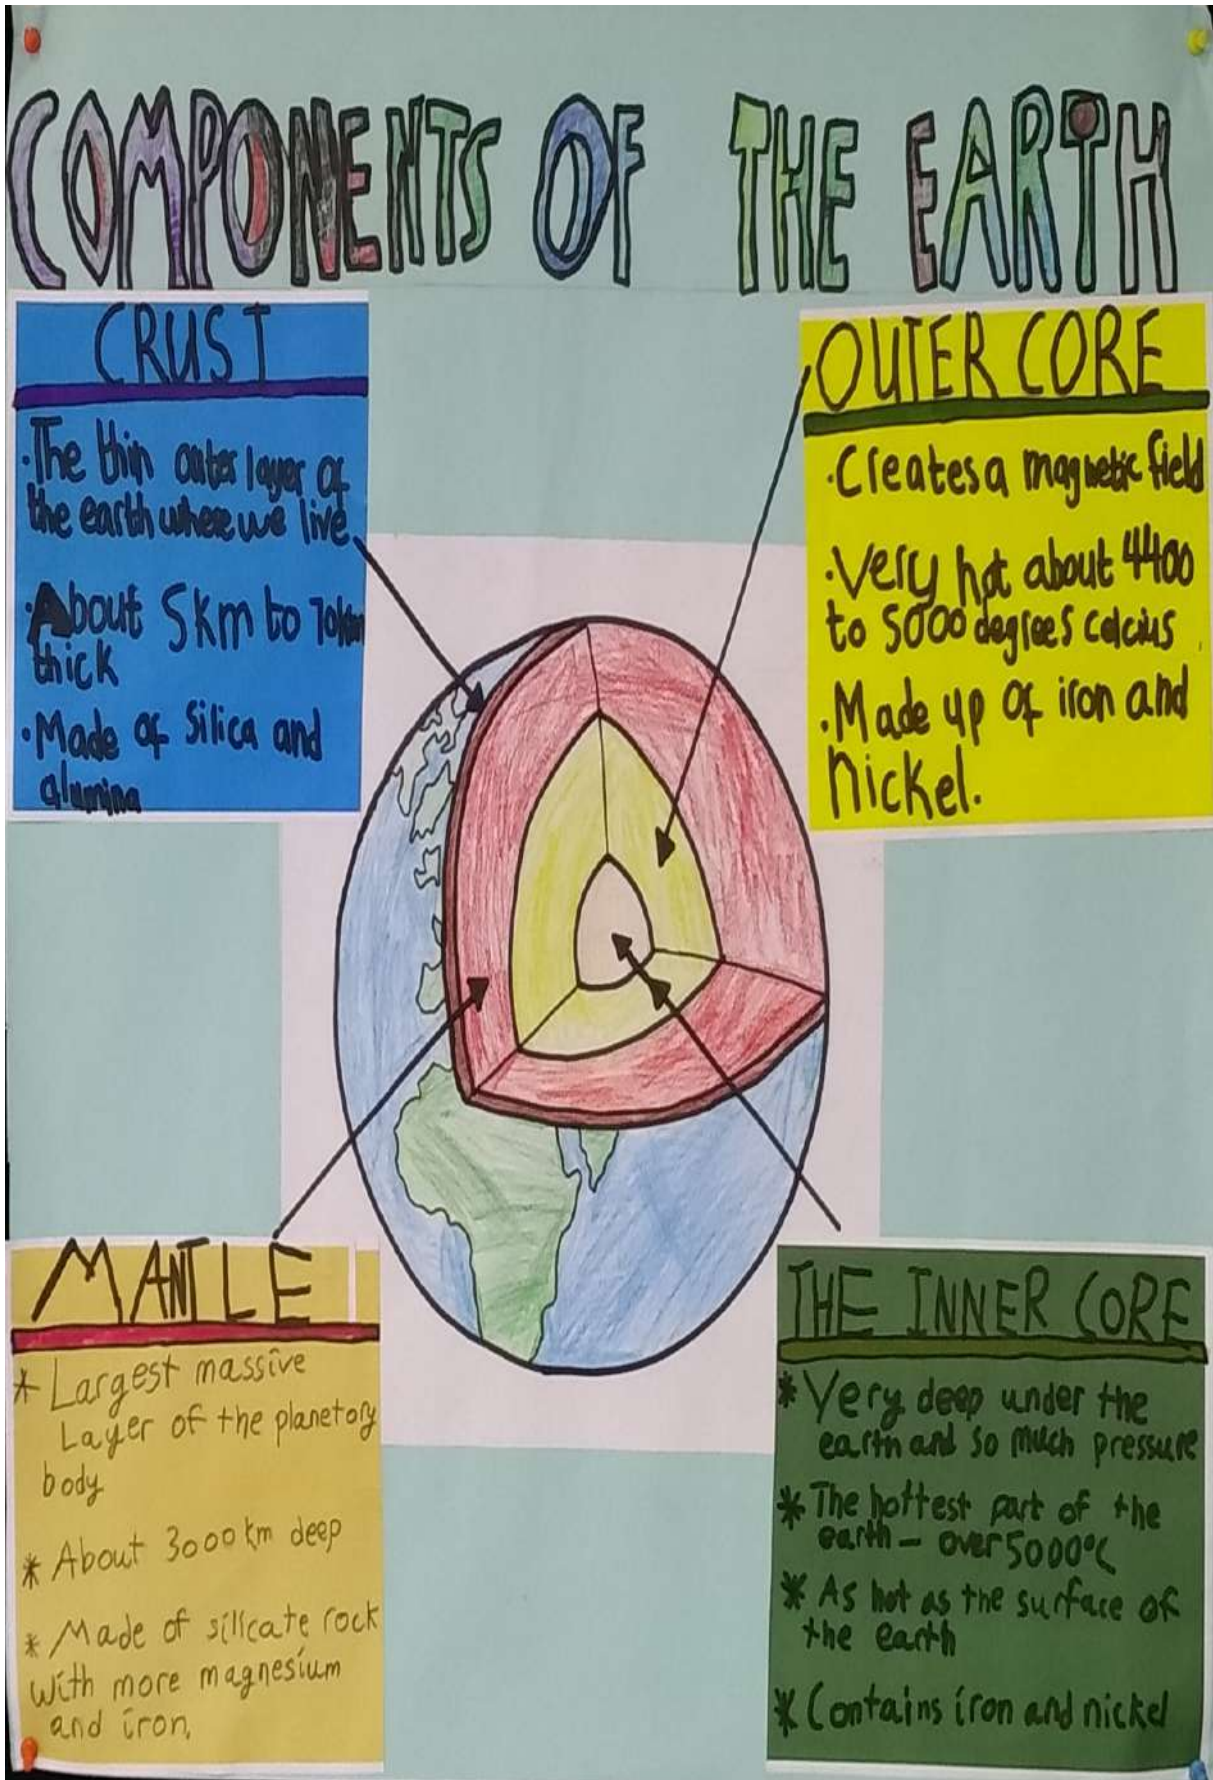 COMPONENTS OF THE EARTH
CRUST
·The thin outer layer of
the earth where we live
·About 5km to 70km
thick
·Made of silica and
alumina
OUTER CORE
·Creates a magnetic field
·Very hot about 4400
to 5000 degrees celcius
·Made up of iron and
nickel.
MANTLE
* Largest massive
Layer of the planetory
body
* About 3000km deep
* Made of silicate rock
with more magnesium
and iron,
THE INNER CORE
* Very deep under the
earth and so much pressure
* The hottest part of the
earth - over 5000°C
* As hot as the surface of
the earth
* Contains iron and nickel